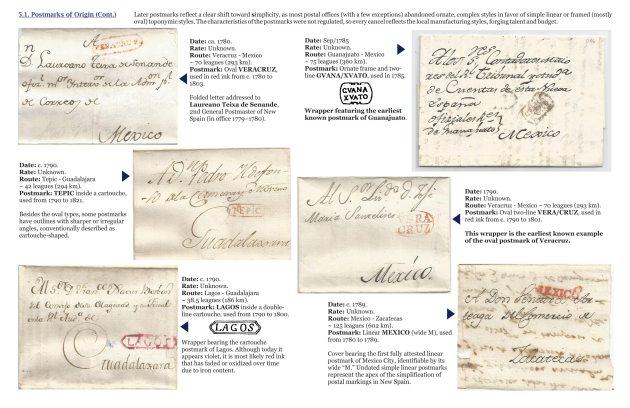 5.1. Postmarks of Origin (Cont.)
Later postmarks reflect a clear shift toward simplicity, as most postal offices (with a few exceptions) abandoned ornate, complex styles in favor of simple linear or framed (mostly
oval) toponymic styles. The characteristics of the postmarks were not regulated, so every cancel reflects the local manufacturing styles, forging talent and budget.
A
VERACRUZ
D. Laureano Texa de Senande
Mexico
Date: ca. 1780.
Rate: Unknown.
Route: Veracruz - Mexico
~ 70 leagues (293 km).
Postmark: Oval VERACRUZ,
used in red ink from c. 1780 to
1803.
Folded letter addressed to
Laureano Teixa de Senande,
2nd General Postmaster of New
Spain (in office 1779–1780).
Date: Sep/1785.
Rate: Unknown.
Route: Guanajuato - Mexico
~ 75 leagues (360 km).
Postmark: Ornate frame and two-
line GVANA/XVATO, used in 1785.
GVANA
XVATO
Wrapper featuring the earliest
known postmark of Guanajuato.
de Cuentas de esta Nueva
España
Mexico
Date: c. 1790.
Rate: Unknown.
Route: Tepic - Guadalajara
~ 42 leagues (294 km).
Postmark: TEPIC inside a cartouche,
used from 1790 to 1821.
Besides the oval types, some postmarks
have outlines with sharper or irregular
angles, conventionally described as
cartouche-shaped.
TEPIC
Guadalaxara
Maria
RA
CRUZ
México
Date: 1790.
Rate: Unknown.
Route: Veracruz - Mexico ~ 70 leagues (293 km).
Postmark: Oval two-line VERA/CRUZ, used in
red ink from c. 1790 to 1801.
This wrapper is the earliest known example
of the oval postmark of Veracruz.
LAGOS
Guadalaxara
Date: c. 1790.
Rate: Unknown.
Route: Lagos - Guadalajara
~ 38.5 leagues (186 km).
Postmark: LAGOS inside a double-
line cartouche, used from 1790 to 1800.
LAGOS
Wrapper bearing the cartouche
postmark of Lagos. Although today it
appears violet, it is most likely red ink
that has faded or oxidized over time
due to iron content.
Date: c. 1789.
Rate: Unknown.
Route: Mexico - Zacatecas
~ 125 leagues (602 km).
Postmark: Linear MEXICO (wide M), used
from 1780 to 1789.
Cover bearing the first fully attested linear
postmark of Mexico City, identifiable by its
wide "M." Undated simple linear postmarks
represent the apex of the simplification of
postal markings in New Spain.
MEXICO
A Don
del Comercio
Zacatecas